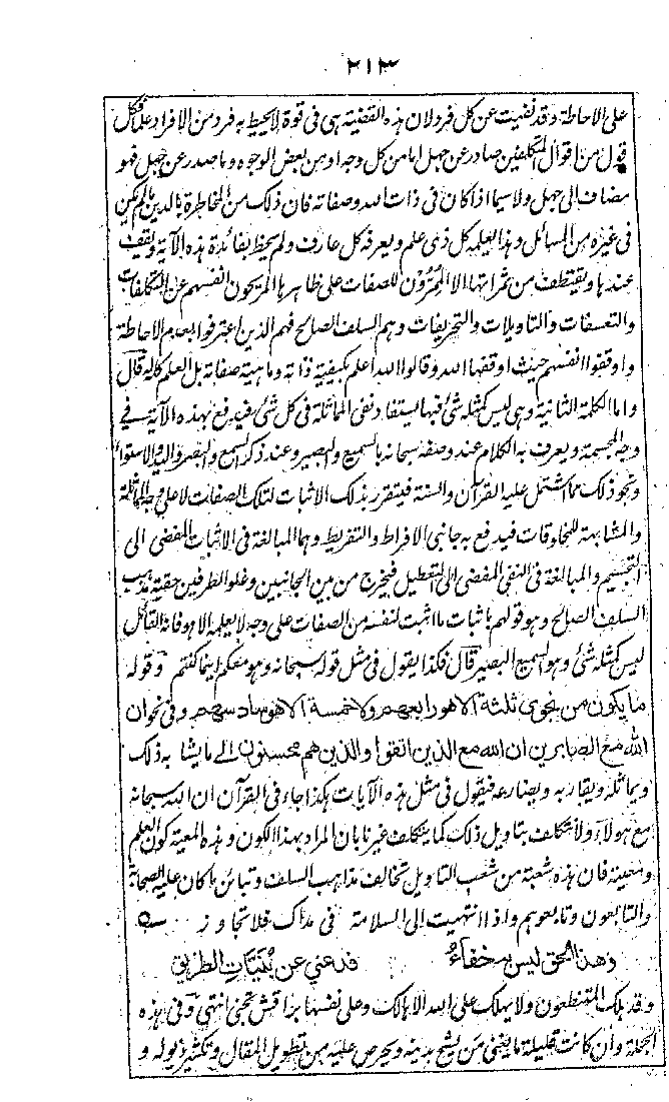 ٢١٣
على الاحاطة وقد نفيت عن كل فرد لان هذه القضية هى فى قوة لا يحيط به فرد من الافراد علما فكل
قول من اقوال المتكلفين صادر عن جهل اما من كل وجه او من بعض الوجوه وما صدر عن جهل فهو
مضاف الى جهل ولا سيما اذا كان فى ذات الله وصفاته فان ذلك من المخاطرة بالدين ما لم يكن
فى غيره من المسائل وهذا يعلمه كل ذى علم ويعرفه كل عارف ولم يحظ بفائدة هذه الآية ويقف
عندها ويقتطف من ثمراتها الا الممرون للصفات على ظاهرها المريحون انفسهم عن التكلفات
والتعسفات والتاويلات والتحريفات وهم السلف الصالح فهم الذين اعترفوا بعدم الاحاطة
واوقفوا انفسهم حيث اوقفها الله وقالوا الله اعلم بكيفية ذاته وماهية صفاته بل العلم كله له قال
واما الكلمة الثانية وهى ليس كمثله شئ فبها يستفاد نفى المماثلة فى كل شئ فيدفع بهذه الآية فى
وجه المجسمة ويعرف به الكلام عند وصفه سبحانه بالسميع والبصير وعند ذكر السمع والبصر واليد والاستواء
ونحو ذلك مما اشتمل عليه القرآن والسنة فيتقرر بذلك الاثبات لتلك الصفات لا على وجه المماثلة
والمشابهة للمخلوقات فيدفع به جانبى الافراط والتفريط وهما المبالغة فى الاثبات المفضى الى
التجسيم والمبالغة فى النفى المفضى الى التعطيل فيخرج من بين الجانبين وغلو الطرفين حقية مذهب
السلف الصالح وهو قولهم باثبات ما اثبت لنفسه من الصفات على وجه لا يعلمه الا هو فانه القائل
ليس كمثله شئ وهو السميع البصير قال فكذا يقول فى مثل قوله سبحانه وهو معكم اينما كنتم وقوله
ما يكون من نجوى ثلثة الا هو رابعهم ولا خمسة الا هو سادسهم وفى نحو ان
الله مع الصابرين ان الله مع الذين اتقوا والذين هم محسنون الى ما يشابه ذلك
ويماثله ويقاربه ويضارعه فيقول فى مثل هذه الآيات هكذا جاء فى القرآن ان الله سبحانه
مع هولاء ولا يتكلف بتاويل ذلك كما يتكلف غيرنا بان المراد بهذا الكون وهذه المعية كون العلم
ومعيته فان هذه شعبة من شعب التاويل تخالف مذاهب السلف وتباين ما كان عليه الصحابة
والتابعون وتابعوهم واذا انتهيت الى السلامة فى مداك فلا تجاوز
وهذا الحق ليس به خفاء فدعنى عن بنيات الطريق
وقد هلك المتنطعون ولا يهلك على الله الا هالك وعلى نفسها براقش تجنى انتهى وفى هذه
الجملة وان كانت قليلة ما يغنى من يشح بدينه ويحرص عليه من تطويل المقال وتكثير ذيوله و